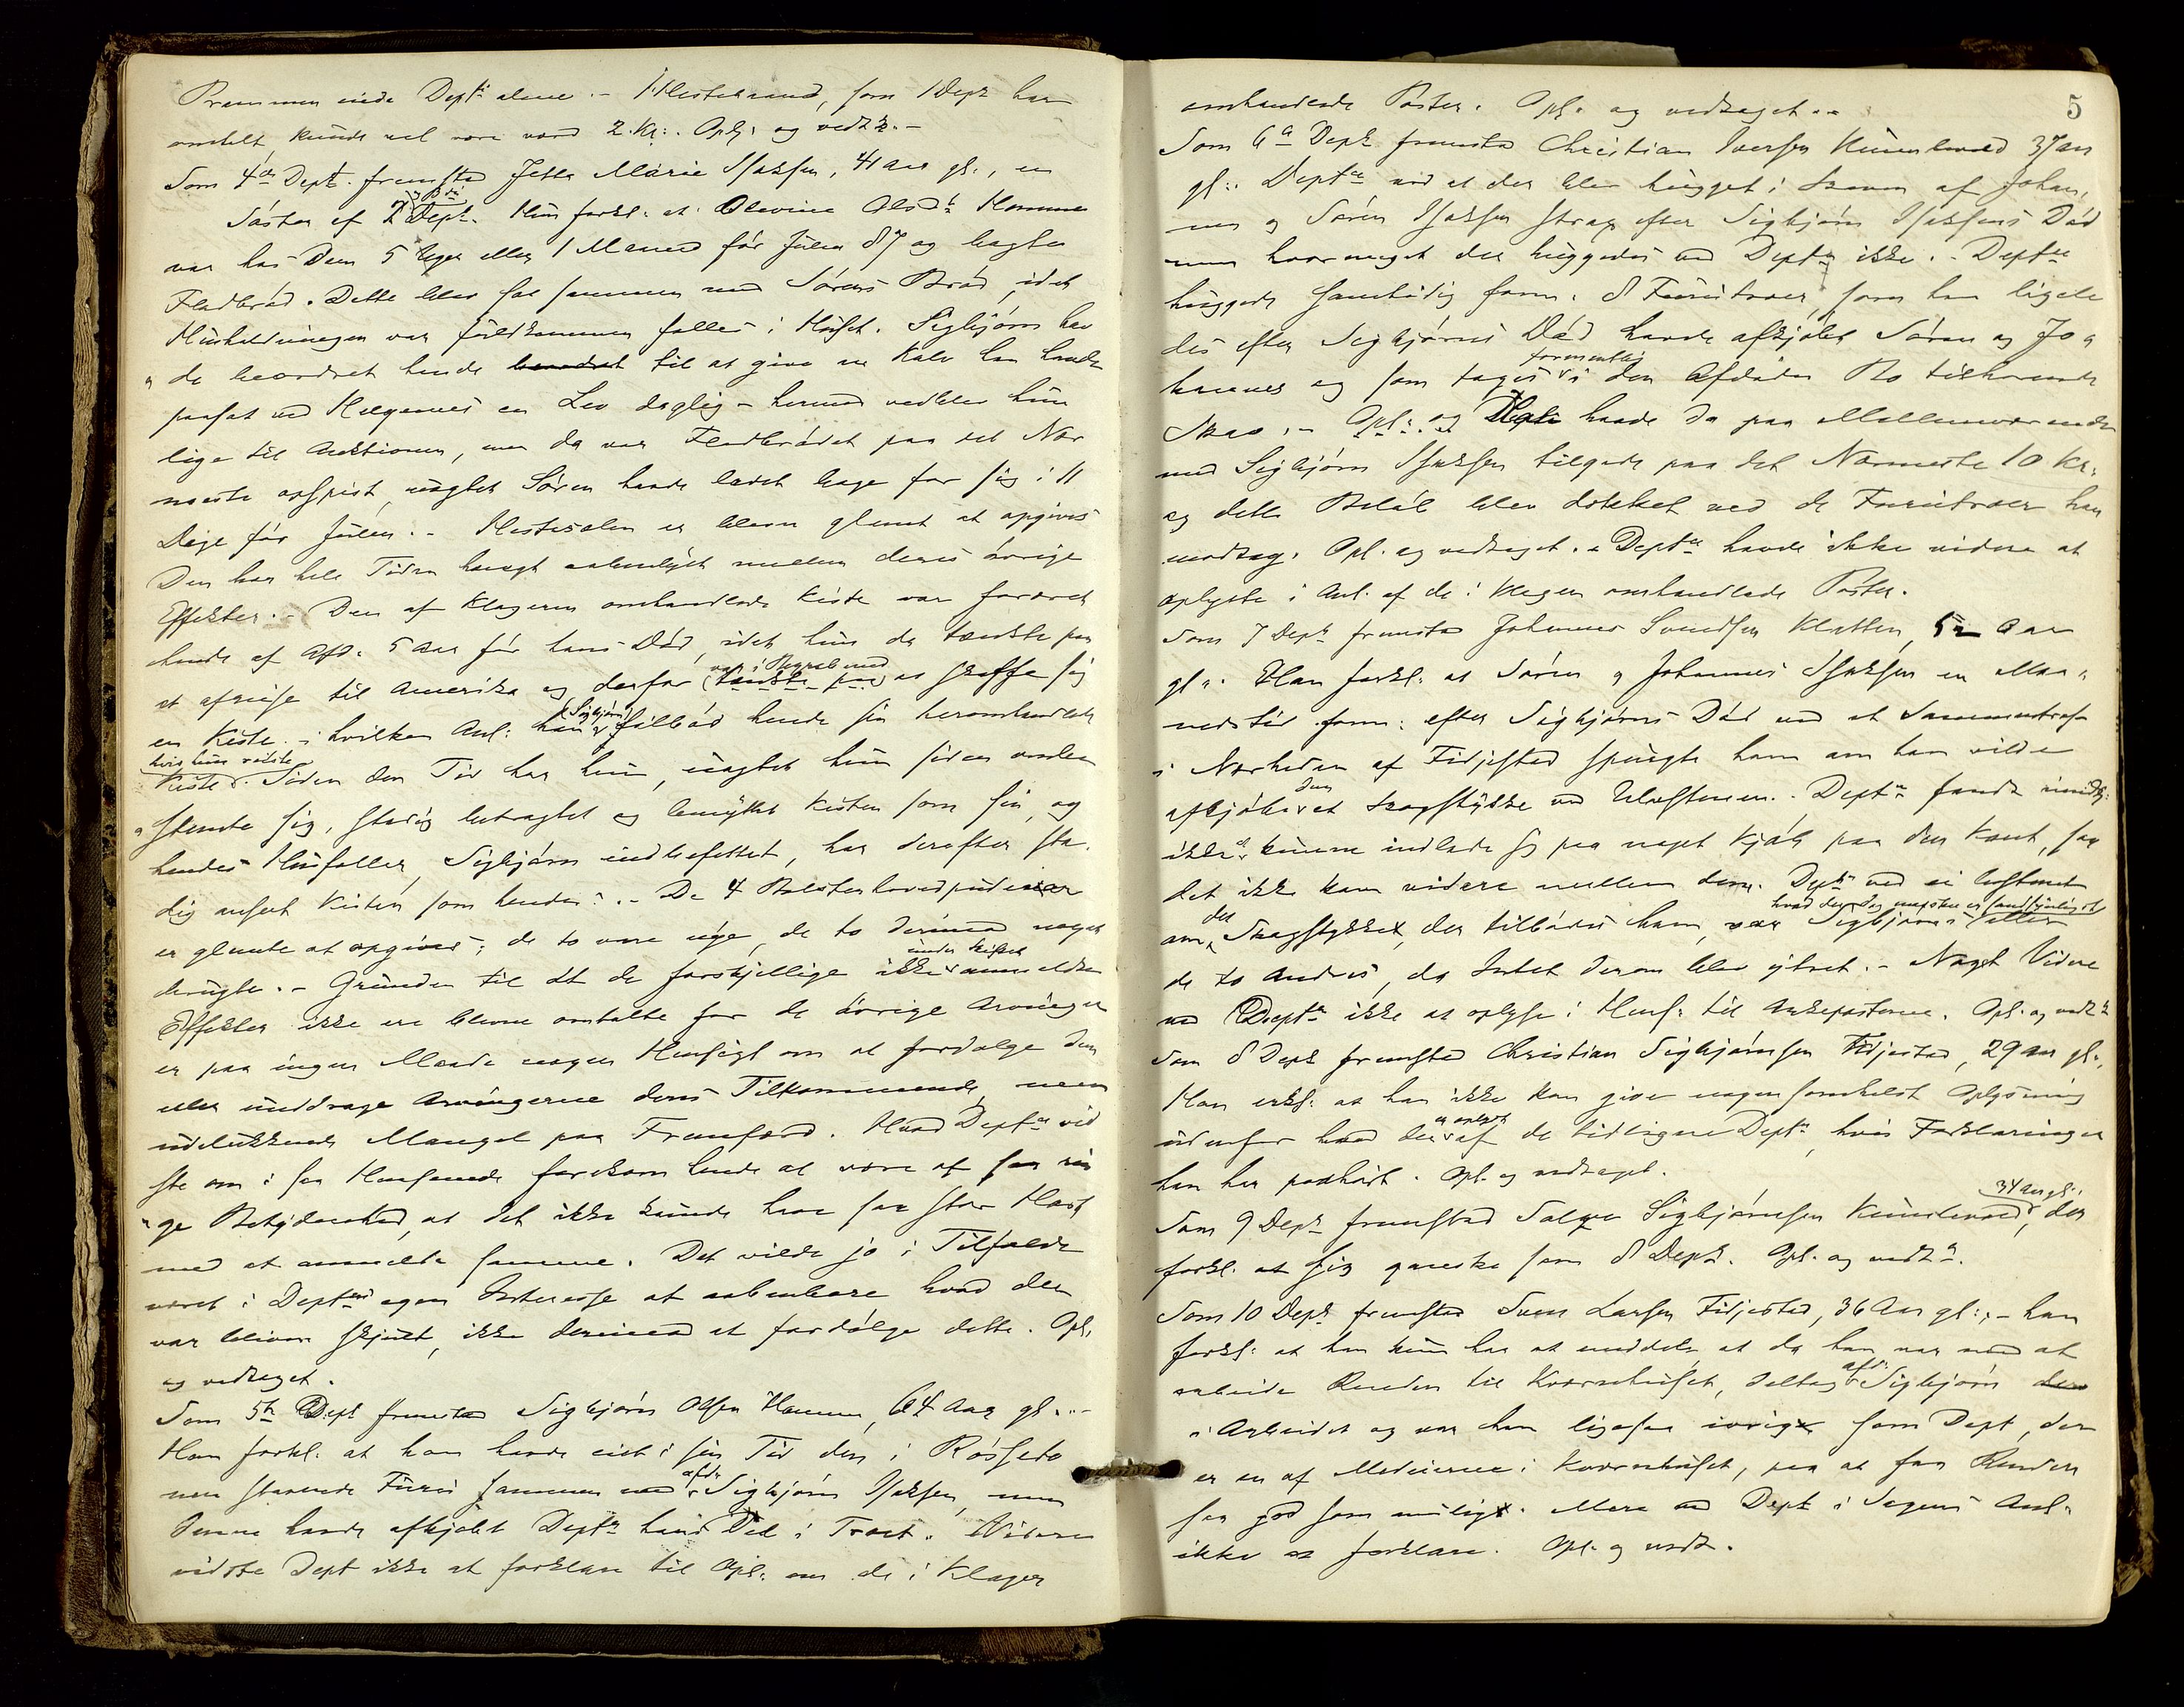 Prammen eiede Deptn alene. – 1 Hestebaand, som 1 Dept har
omtalt, kunde vel være værd 2 Kr. Opl: og vedtt. –
Som 4de Dept. fremstod Jette Marie Isaksen, 41 Aar gl., en
Søster af 2 og 3die Dept. Hun forkl. at Olevine Olsdt Homme
var hos dem 5 Uger eller 1 Maaned før Julen 87 og bagte
Fladbrød. Dette blev sat sammen med Sørens Brød, idet
Husholdningen var fuldkommen fælles i Huset. Sigbjørn hav
„de beordret hende til at give en Kalv han havde
paasat ved Helgemes en Lev daglig – hermed vedblev hun
lige til Auktionen, men da var Fladbrødet paa det Nær
meste opspist, uagtet Søren havde ladet bage for sig i 11
Dage før Julen. – Hestesalen er bleven glemt at opgives
Den har hele Tiden hængt aabenlyst mellem deres øvrige
Effekter. – Den af Klageren omhandlede Kiste var foræret
hende af Afd. 5 Aar før hans Død, idet hun da tænkte paa
at afreise til Amerika og derfor (tænkte paa) var i Begreb med at skaffe sig
en Kiste, i hvilken Anl: han (Sigbjørn) tilbød hende sin heromhandlede
Kiste. hvis hun reiste Siden den Tid har hun, uagtet hun siden ombe
„stemte sig, stadig betragtet og benyttet Kisten som sin, og
hendes Husfæller, Sigbjørn indbefattet, har derefter sta
dig anseet Kisten som hendes. – De 4 Bolsterhovedpuder
er glemte at opgives; de to vare nye, de to derimod noget
brugte. – Grunden til at de forskjellige ikke under Skiftet anmeldte
Effekter ikke ere blevne omtalte for de øvrige Arvinger
er paa ingen Maade nogen Hensigt om at fordølge dem
eller unddrage Arvingerne deres Tilkommende, men
udelukkende Mangel paa Fremfærd. Hvad Deptn vid
ste om i saa Henseende forekom hende at være af saa rin
„ge Betydenhed, at det ikke kunde have saa stor Hast
med at anmelde samme. Det vilde jo i Tilfælde
været i Deptens egen Interesse at aabenbare hvad der
var bleven skjult, ikke derimod at fordølge dette. Opl.
og vedtaget.
Som 5te Dept fremstod Sigbjørn Olsen Homme, 64 Aar gl. –
Han forkl. at han havde eiet i sin Tid den i Røsfeto
nen staaende Furu sammen med afd. Sigbjørn Isaksen, men
denne havde afkjøbt Deptn hans Del i Træet. Videre
vidste Dept ikke at forklare til Opl: om de i Klagen
5
omhandlede Poster. Opl. og vedtaget. –
Som 6te Dept fremstod Christian Iversen Kunulsvaad 37 Aar
gl. Deptn ved at der blev hugget i Skoven af Johan,
nes og Søren Isaksen strax efter Sigbjørn Isaksens Død
men hvormeget der huggedes ved Deptn ikke. – Deptn
huggede samtidig form. 8 Furutrær, som han ligele
des efter Sigbjørns Død havde afkjøbt Søren og Jo„
hannes og som toges formentlig i den Afdødes Bo tilhørende
Skov. – Opl: og Deptn havde da paa Mellemværende
med Sigbjørn Isaksen tilgode paa det Nærmeste 10 Kr.
og dette Beløb blev dækket ved de Furutrær han
modtog. Opl. og vedtaget. – Deptn havde ikke videre at
oplyste i Anl. af de i Klagen omhandlede Poster.
Som 7 Dept fremstod Johannes Svendsen Klatten, 52 Aar
gl. Han forkl. at Søren og Johannes Isaksen en Maa„
nedstid form: efter Sigbjørns Død ved at Sammentræf
i Nærheden af Fidjestad spurgte ham om han vilde
afkjøbe dem et Skogstykke ved Ulvstenen. – Deptn fandt imidl:
ikke at kunne indlade sig paa noget Kjøb paa den Kant, saa
det ikke kom videre mellem dem. Deptn ved ei bestemt
om det Skogstykket, der tilbødes ham, var Sigbjørns hvad der dog maaske er sandsynligst eller
de to Andres, da Intet derom blev ytret. – Noget Videre
ved Deptn ikke at oplyse i Hens: til Ankeposterne. Opl. og vedtt
Som 8 Dept fremstod Christian Sigbjørnsen Fidjestad, 29 Aar gl.,
Han erkl: at han ikke kan give nogensomhelst Oplysning
udenfor hvad der er oplyst af de tidligere Deptr, hvis Forklaringer
han har paahørt. Opl. og vedtaget.
Som 9 Dept fremstod Salve Sigbjørnsen Kunulsvaad, 34 Aar gl. der
forkl. at sig ganske som 8 Dept. Opl. og vedtt.
Som 10 Dept fremstod Sven Larsen Fidjestad, 36 Aar gl:, – han
forkl: at han kun har at meddele at da han var med at
arbeide Renden til Kværnhuset, deltog afd. Sigbjørn
i Arbeidet og var han ligesaa ivrig som Dept, der
er en af Medeierne i Kværnhuset, paa at faa Renden
saa god som muligt. Mere ved Dept i Sagens Anl.
ikke at forklare. Opl. og vedt.